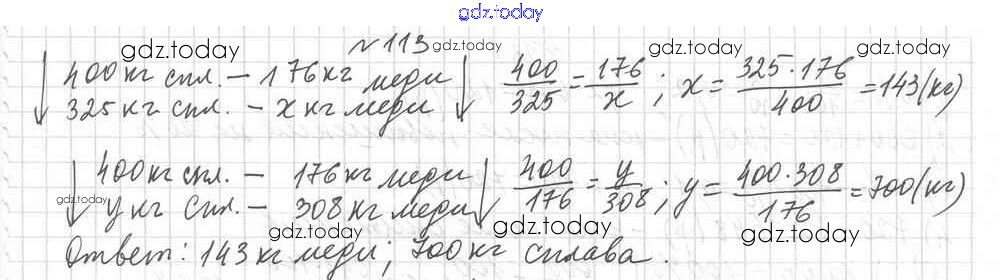 gdz.today
№113 gdz.today
gdz.today gdz.today gdz.today
↓ 400 кг спл. – 176 кг меди ↓ 400/325 = 176/x ; x = 325·176/400 = 143 (кг)
325 кг спл. – x кг меди
↓ 400 кг спл. – 176 кг меди ↓ 400/176 = y/308 ; y = 400·308/176 = 700 (кг)
y кг спл. – 308 кг меди
gdz.today gdz.today gdz.today gdz.today
Ответ: 143 кг меди; 700 кг сплава.